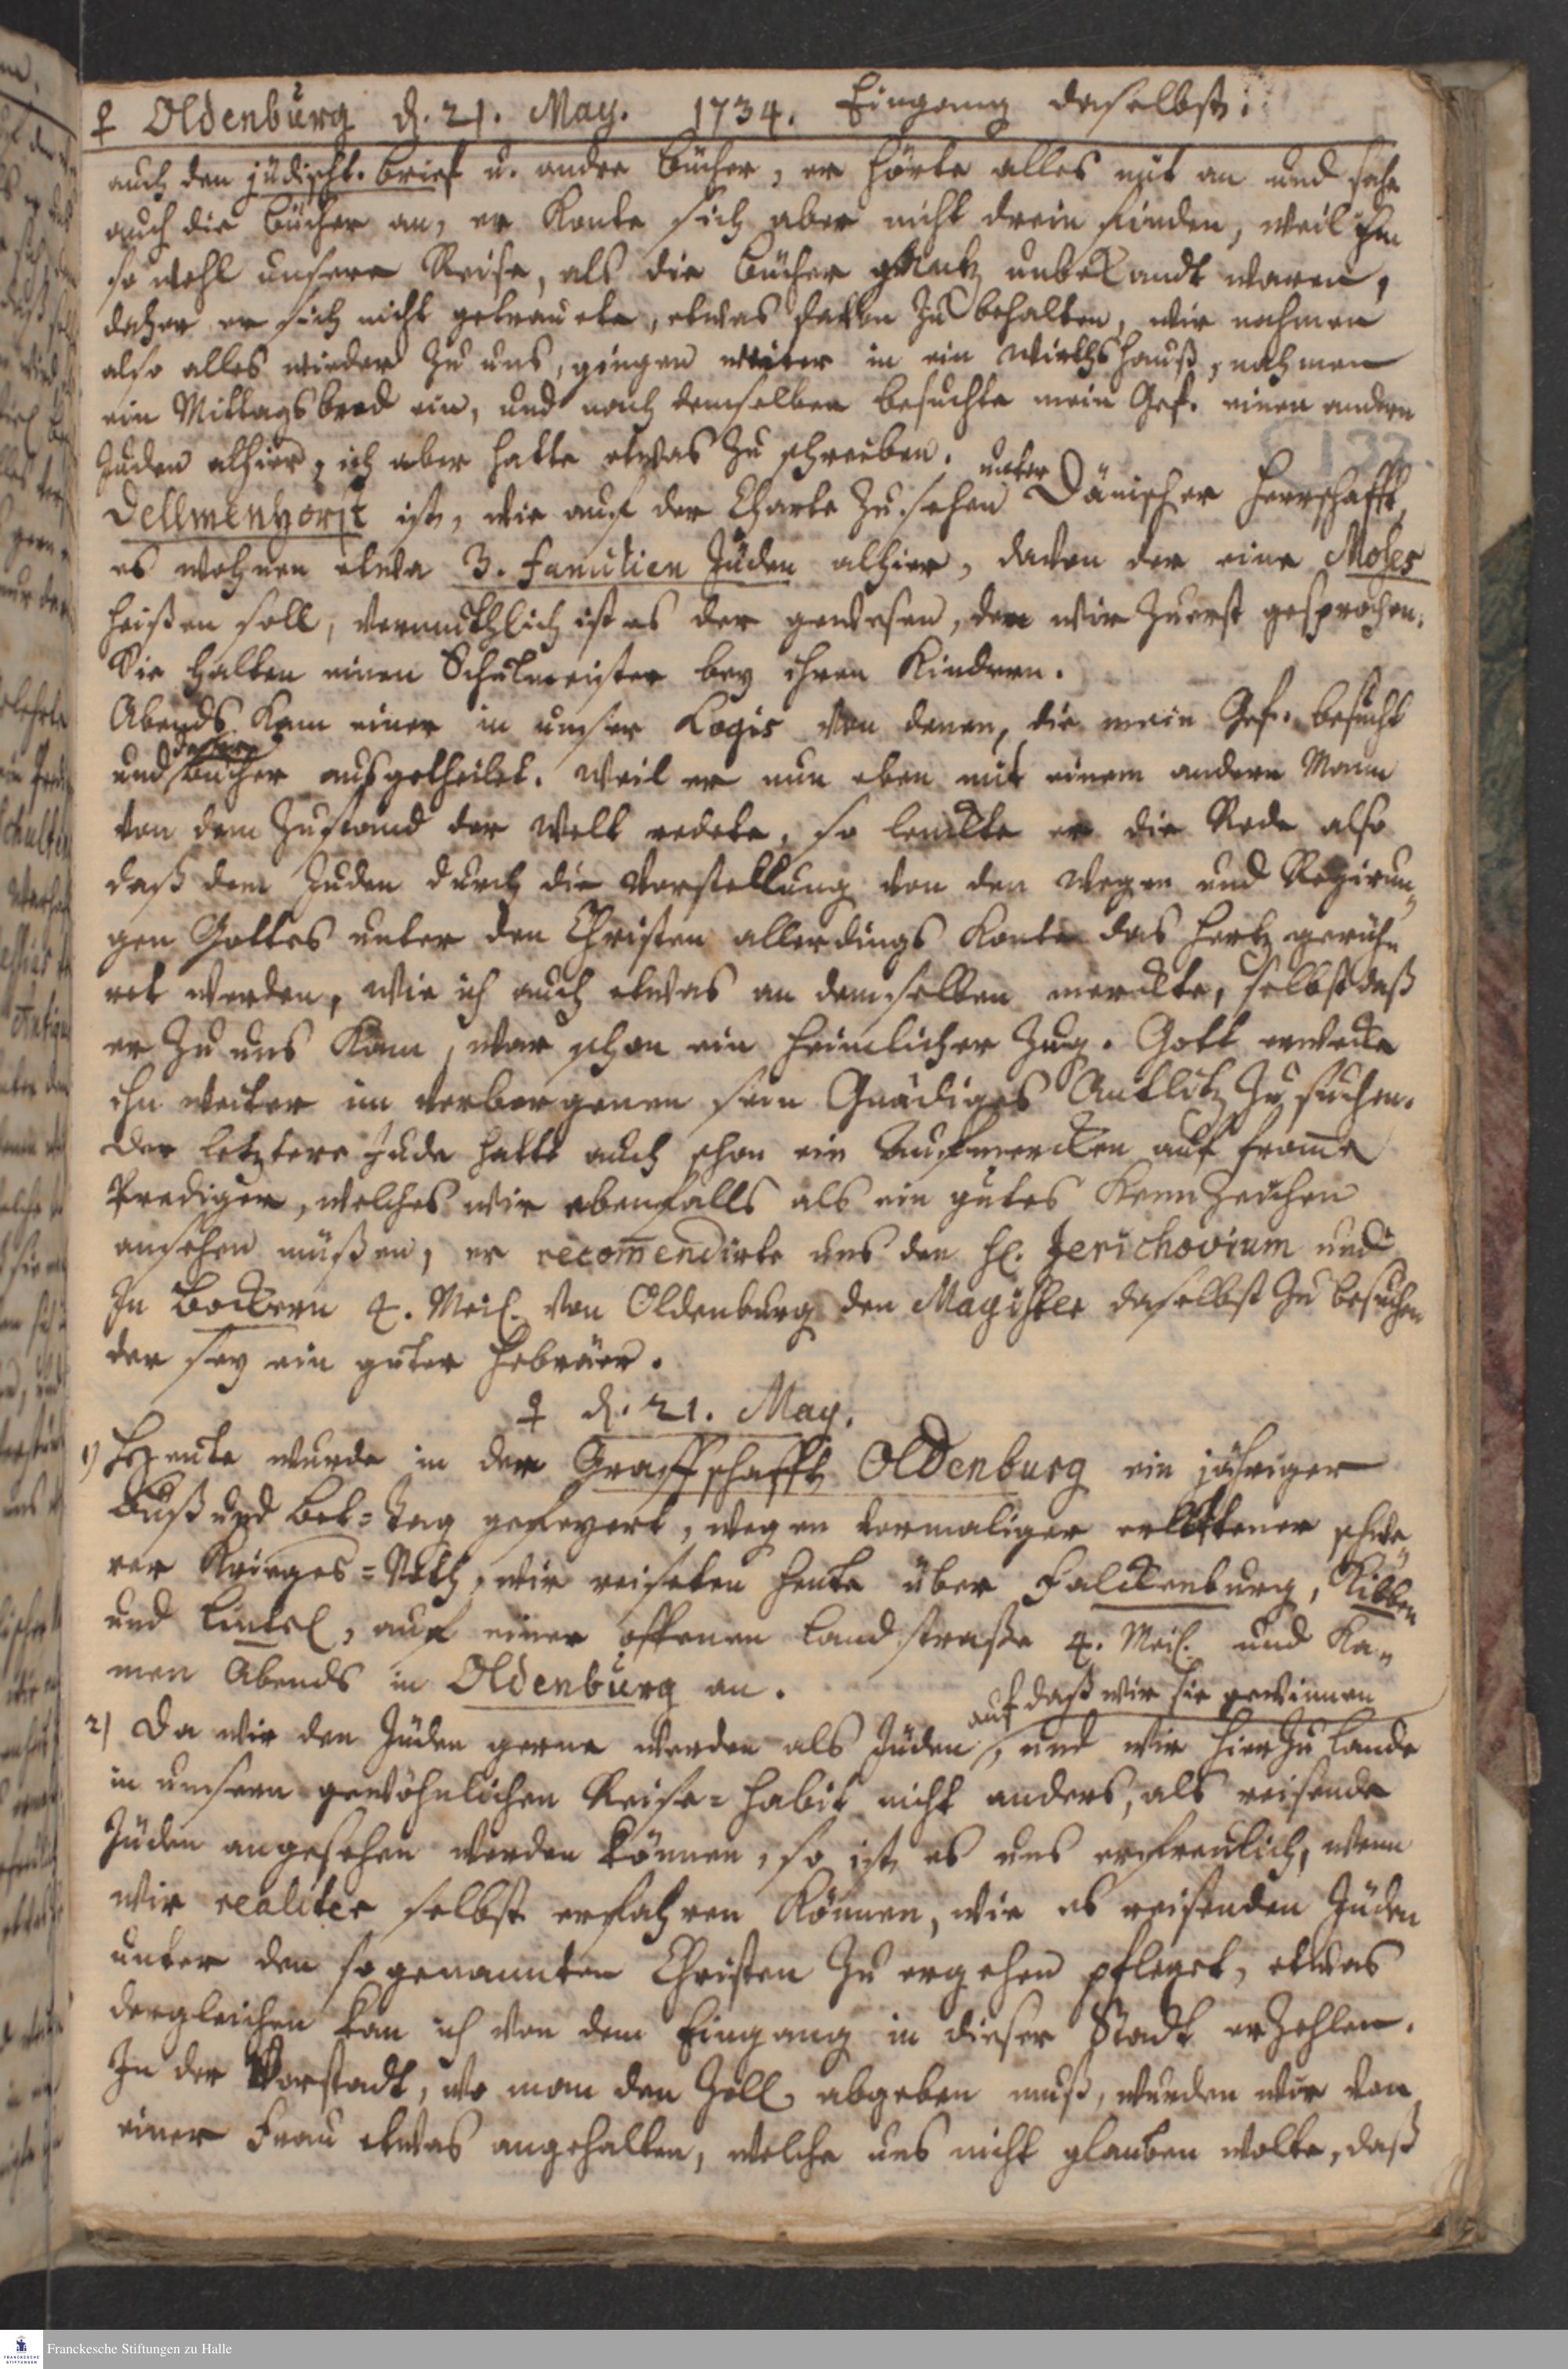 ♀ Oldenburg d. 21. May. 1734. Eingang daselbst.
auch den jüdischt. brief u. andre bücher, er hörte alles mit an und sahe
auch die bücher an, er konte sich aber nicht drein finden, weil ihm
so wohl unsere Reise, als die bücher gantz unbekandt waren,
daher er sich nicht getrauete, etwas davon zu behalten, wir nahmen
also alles wieder zu uns, gingen weiter in ein wirthshauß, nahmen
ein Mittagsbrod ein, und nach demselben besuchte mein Gef. einen andern
Juden alhier, ich aber hatte etwas zu schreiben.
Dellmenhorst ist, wie auf der Charte zu sehen unter Dänischer Herrschafft,
es wohnen etwa 3. familien Juden alhier, davon der eine Moses
heißen soll, vermuthlich ist es der gewesen, den wir zuerst gesprochen.
Sie halten einen Schulmeister bey ihren Kindern.
Abends kam einer in unser Logis von denen, die mein Gef. besucht
und bücher ausgetheilet. weil er nun eben mit einem andern Mann
von dem Zustand der welt redete, so lenckte er die Rede also
daß dem Juden durch die vorstellung von den wegen und Regirun„
gen Gottes unter den Christen allerdings konte das hertz gerüh„
ret werden, wie ich auch etwas an demselben merckte, selbst daß
er zu uns kam, war schon ein heimlicher Zug. Gott erwecke
ihn weiter im verborgenen sein Gnädiges Antlitz zu suchen.
der letztere Jude hatte auch schon ein Aufmercken auf from̄e
Prediger, welches wir ebenfalls als ein gutes Kennzeichen
ansehen müßen, er recom̄endirte uns den H. Jerichovium und
in Bockern 4. Meil. von Oldenburg den Magister daselbst zu besuchen
der sey ein guter Hebräer.
♀ d. 21. May.
1) Heute wurde in der Graffschafft Oldenburg ein jähriger
Buß und Bet=Tag gefeyert, wegen vormaliger erlittener schwe„
rer Krieges=Noth, wir reiseten heute über Falckenburg, Kibben
und Lintel, auf einer offenen landstraße 4. Meil. und ka„
men Abends in Oldenburg an.
2) Da wir den Juden gerne werden als Juden, auf daß wir sie gewinnen und wir hier zu lande
in unsern gewöhnlichen Reise=habit nicht anders, als reisende
Juden angesehen werden können, so ist es uns erfreulich, wenn
wir realiter selbst erfahren können, wie es reisenden Juden
unter den so genannten Christen zu ergehen pfleget, etwas
dergleichen kan ich von dem Eingang in dieser Stadt erzehlen.
In der Vorstadt, wo man den Zoll abgeben muß, wurden wir von
einer Frau etwas angehalten, welche uns nicht glauben wolte, daß
Franckesche Stiftungen zu Halle